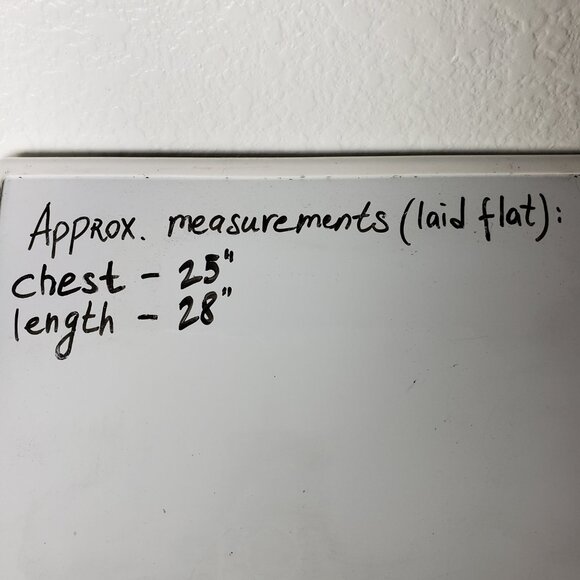 Approx. measurements (laid flat):
chest - 25"
length - 28"